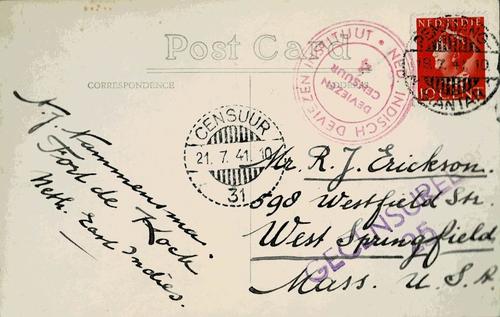 Post Card
CORRESPONDENCE
NED. INDISCH DEVIEZEN INSTITUUT
DEVIEZEN
CENSUUR
NED. INDIE
10 CENT
18.7.41.10
CENSUUR
21.7.41.10
31
GECENSUREERD
25
Fort de Kock
Neth. East Indies.
Mr. R. J. Erickson.
598 Westfield Str.
West Springfield
Mass. U.S.A